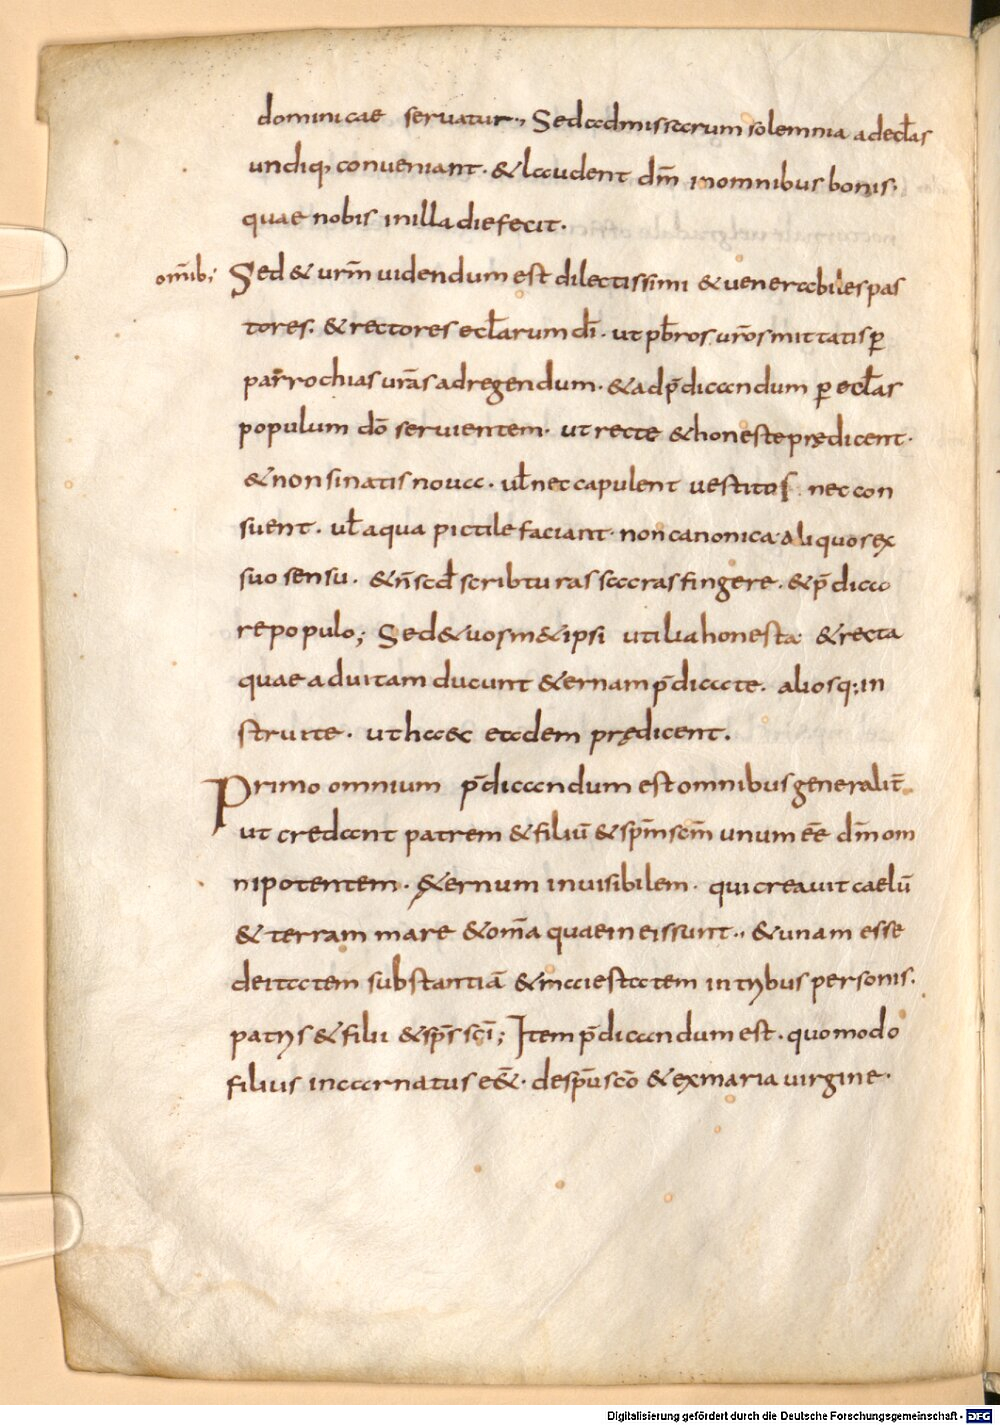 dominicae servatur., Sed ad missarum solemnia ad ecl̅as
undiq, conveniant. & laudent dm̅ in omnibus bonis.
quae nobis in illa die fecit.
om̅ib; Sed & urm̅ uidendum est dilectissimi & uenerabiles pas
tores. & rectores ecl̅arum di̅. ut pb̅ros uro̅s mittatis p̲
parrochias ura̅s ad regendum. & ad p̅dicandum p̲ ecl̅as
populum do̅ seruientem. ut recte & honeste prędicent.
& non sinatis noua. ul̅ nec capulent uestitos nec con
suent. ul̅ aqua pictile faciant. non canonica. Aliquos ex
suo sensu. & n̅ scd̅ scribturas sacras fingere. & p̅dica
re populo; Sed & uos m&ipsi utilia honesta & recta
quae ad uitam ducunt &ernam p̅dicate. aliosq; in
struite. ut haec eadem prędicent.
Primo omnium p̅dicandum est omnibus generalit̅.
ut credant patrem & filiu̅ & spm̅ scm̅ unum ee̅ dm̅ om
nipotentem. &ernum inuisibilem. qui creauit caelu̅
& terram mare & om̅a quae in eis sunt., & unam esse
deitatem substantia̅ & maiestatem in trybus personis.
patrys & filii & sps̅ sci̅; Item p̅dicandum est. quomodo
filius incarnatus e&̅. de spu̅ sco̅ & ex maria uirgine.
Digitalisierung gefördert durch die Deutsche Forschungsgemeinschaft - DFG